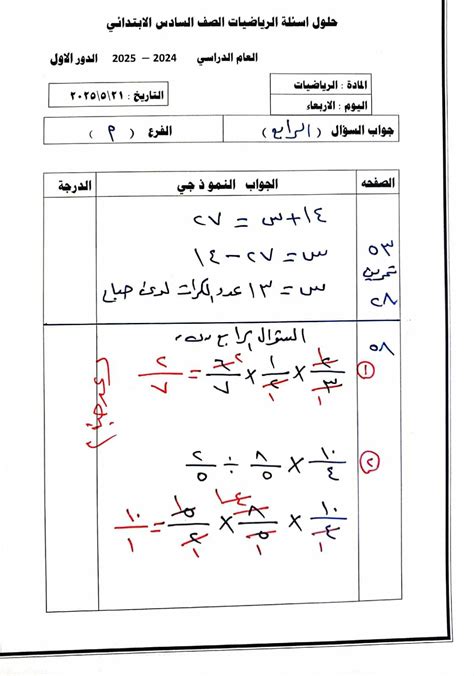 حلول اسئلة الرياضيات الصف السادس الابتدائي
العام الدراسي 2024 – 2025 الدور الاول
المادة : الرياضيات
التاريخ : ٢٠٢٥/٥/٢١
اليوم : الاربعاء
جواب السؤال ( الرابع ) الفرع ( م )
الصفحه الجواب النموذجي الدرجة
١٤+س = ٢٧
٥٣ س = ٢٧-١٤
تمرين ٢٨ س = ١٣ عدد الكرات لدى صباح
٥٨ السؤال الرابع
① ٢/٣ × ١/٢ × ٦/٧ = ٢/٧
② ١٠/٤ × ٨/٥ ÷ ٢/٥
١٠/٤ × ٨/٥ × ٥/٢ = ١٠/١